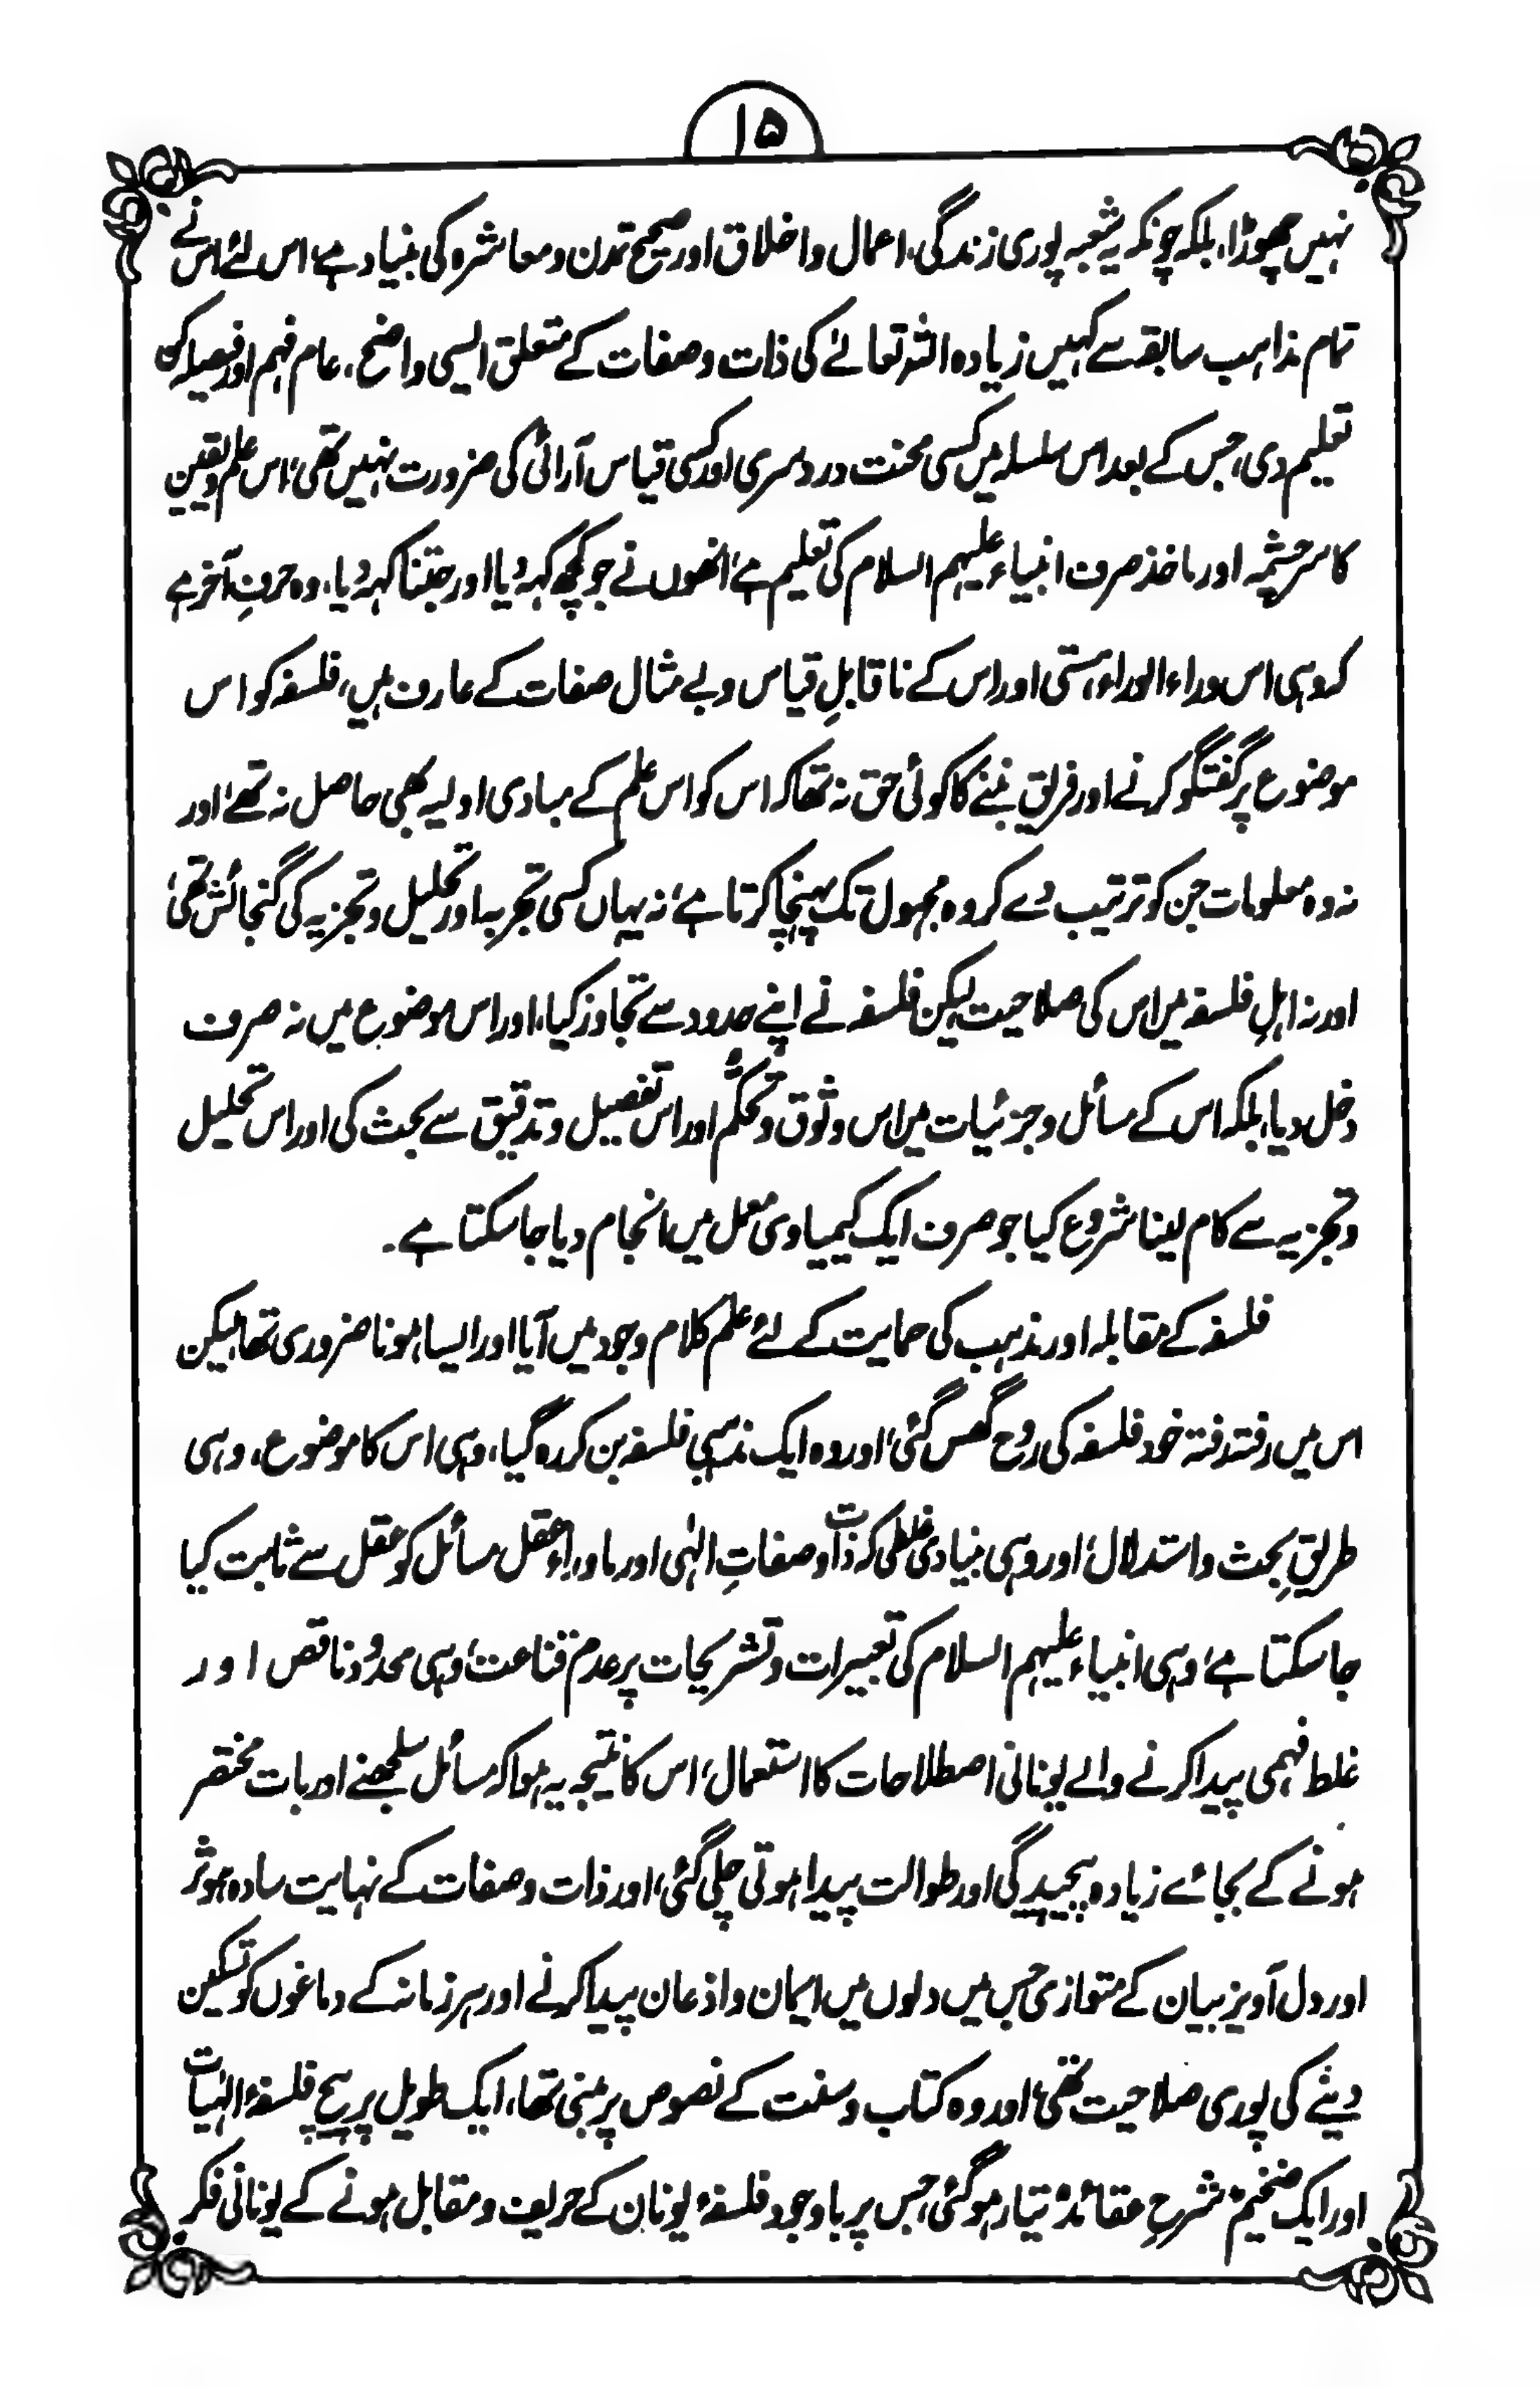 ۱۵
نہیں چھوڑا، بلکہ چونکہ یہ شعبہ پوری زندگی، اعمال و اخلاق اور صحیح تمدن و معاشرہ کی بنیاد ہے، اس لئے اس نے
تمام مذاہب سابقہ سے کہیں زیادہ اللہ تعالےٰ کی ذات و صفات کے متعلق ایسی واضح، عام فہم اور فیصلہ کن
تعلیم دی، جس کے بعد اس سلسلہ میں کسی محنت دردسری اور کسی قیاس آرائی کی ضرورت نہیں تھی، اس علم و یقین
کا سرچشمہ اور ماخذ صرف انبیاء علیہم السلام کی تعلیم ہے، انھوں نے جو کچھ کہہ دیا اور جتنا کہہ دیا، وہ حرفِ آخر ہے
کہ وہی اس وراء الوراء ہستی اور اس کے ناقابلِ قیاس و بے مثال صفات کے عارف ہیں، فلسفہ کو اس
موضوع پر گفتگو کرنے اور فریق بننے کا کوئی حق نہ تھا کہ اس کو اس علم کے مبادی اولیہ بھی حاصل نہ تھے، اور
نہ وہ معلومات جن کو ترتیب دے کر وہ مجہول تک پہنچا کرتا ہے، نہ یہاں کسی تجربہ اور تحلیل و تجزیہ کی گنجائش تھی،
اور نہ اہلِ فلسفہ میں اس کی صلاحیت لیکن فلسفہ نے اپنے حدود سے تجاوز کیا، اور اس موضوع میں نہ صرف
دخل دیا، بلکہ اس کے مسائل و جزئیات میں اس وثوق و تحکّم اور اس تفصیل و تدقیق سے بحث کی اور اس تحلیل
و تجزیہ سے کام لینا شروع کیا جو صرف ایک کیمیاوی معمل میں انجام دیا جا سکتا ہے۔
فلسفہ کے مقابلہ اور مذہب کی حمایت کے لئے علم کلام وجود میں آیا اور ایسا ہونا ضروری تھا، لیکن
اس میں رفتہ رفتہ خود فلسفہ کی روح گھس گئی، اور وہ ایک مذہبی فلسفہ بن کر رہ گیا، وہی اس کا موضوع، وہی
طریقِ بحث و استدلال، اور وہی بنیادی غلطی کہ ذات و صفاتِ الٰہی اور ماوراءِ عقل مسائل کو عقل سے ثابت کیا
جا سکتا ہے، وہی انبیاء علیہم السلام کی تعبیرات و تشریحات پر عدم قناعت، وہی محدود ناقص اور
غلط فہمی پیدا کرنے والے یونانی اصطلاحات کا استعمال، اس کا نتیجہ یہ ہوا کہ مسائل سلجھنے اور بات مختصر
ہونے کے بجائے زیادہ پیچیدگی اور طوالت پیدا ہوتی چلی گئی، اور ذات و صفات کے نہایت سادہ، موثر
اور دل آویز بیان کے متوازی جس میں دلوں میں ایمان و اذعان پیدا کرنے اور ہر زمانہ کے دماغوں کو تسکین
دینے کی پوری صلاحیت تھی، اور وہ کتاب و سنت کے نصوص پر مبنی تھا، ایک طویل پر پیچ فلسفۂ الٰہیات
اور ایک ضخیم "شرح عقائد" تیار ہو گئی، جس پر باوجود فلسفۂ یونان کے حریف و مقابل ہونے کے یونانی فکر